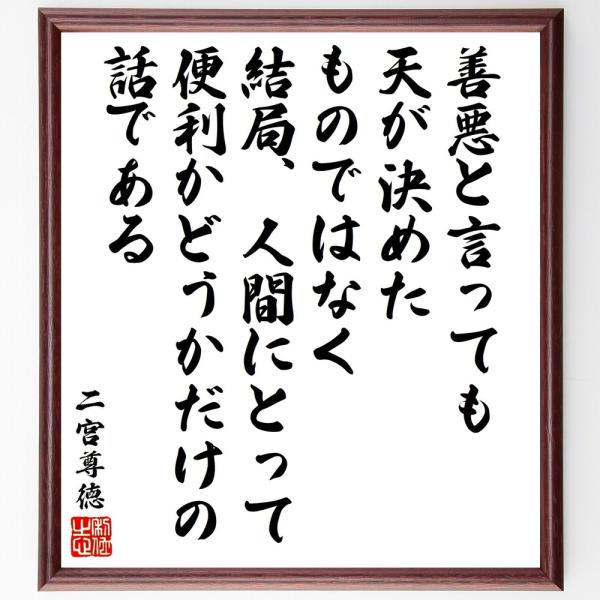 善悪と言っても
天が決めた
ものではなく
結局、人間にとって
便利かどうかだけの
話である
二宮尊徳